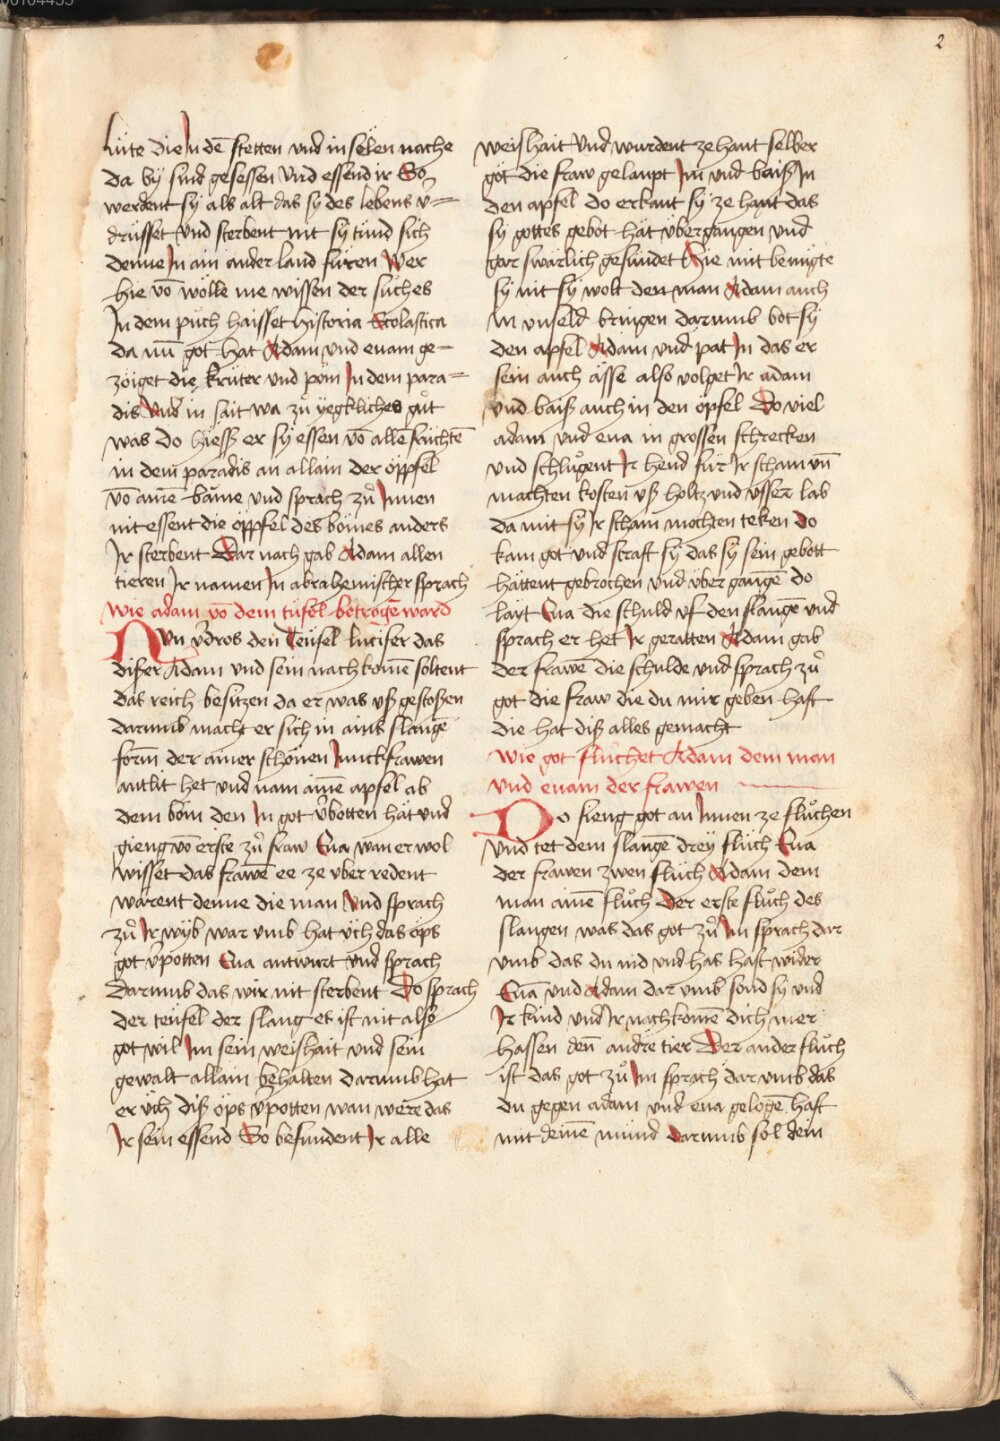 2
lüte die In dē stetten vnd in selen nache
da by sind gesessen Vnd essend ir So
werdent sy als alt das sy des lebens v̄=
drüsset Vnd sterbent nit sy tünd sich
denne In ain ander land füren Wer
hie vō wölle me wissen der süches
In dem püch haisset historia Scolastica
da nū got hat Adam vnd euam ge=
zöiget die krüter vnd pöm In dem para=
dis Vnd in sait wa zů yegkliches gůt
was Do hiesß er sy essen vō allē früchtē
in dem paradis an allain der öppfel
vō ainē bäme vnd sprach zů Innen
nit essent die öppfel des böimes anders
Ir sterbent Dar nach gab Adam allen
tieren Ir namen In abrahemischer sprach
wie adam vō dem tüfel betrogē ward
Nvn v̄dros den Teüfel lucifer das
dißer Adam vnd sein nachkomē soltent
das reich besitzen da er was vß gestoßen
darumb macht er sich in ains slangē
form der ainer schönen Junckfrawen
antlit het vnd nam ainē apfel ab
dem böm den In got v̄botten hät vnd
gieng vō erste zů fraw Eua wan er wol
wisset das frawē ee ze vber redent
wärent denne die man Vnd sprach
zů Ir wyb war vmb hat üch das öps
got v̄potten Eua antwurt Vnd sprach
Darumb das wir nit sterbent Do sprach
der teüfel der slang es ist nit also
got wil Im sein weishait vnd sein
gewalt allain behalten darumb hat
er üch diß öps v̄potten wan were das
Ir sein essend So befundent Ir alle
weishait Vnd wurdent ze hant selber
göt die fraw gelaupt Im vnd baiß In
den apfel do erkant sy ze hant das
sy gottes gebot hät übergangen vnd
gar swärlich gesündet Hie mit benügte
sy nit sy wolt den man Adam auch
in vnseld bringen darumb bot sy
den apfel Adam vnd pat In das er
sein auch ässe also volget Ir adam
Vnd baiß auch in den öpfel Do viel
adam vnd eua in grossen schrecken
vnd schlůgent Ir hend für Ir scham vn̄
machten kosten vß holtz vnd vsser lab
da mit sy Ir scham mochten teken Do
kam got vnd straft sy das sy sein gebott
hättent gebrochen vnd über gangē do
layt Eua die schuld vf den slangē vnd
sprach er het Ir geratten Adam gab
der frawe die schulde vnd sprach zů
got die fraw die du mir geben hast
die hat diß alles gemacht
wie got flůchet Adam dem man
vnd euam der frawen
Do fieng got an Innen ze flůchen
Vnd tet dem slangē drey flüch Eua
der frawen zwen flüch Adam dem
man ainē flůch Der erste flůch des
slangen was das got zů Im sprach dar
vmb das du nid vnd has hast wider
Euā vnd Adam dar vmb sönd sy vnd
Ir kind vnd Ir nachkomē dich mer
hassen den̄ andre tier Der ander flůch
ist das got zů Im sprach dar vmb das
du gegen adam vnd eua gelogē hast
mit deinē mund Darumb sol dem